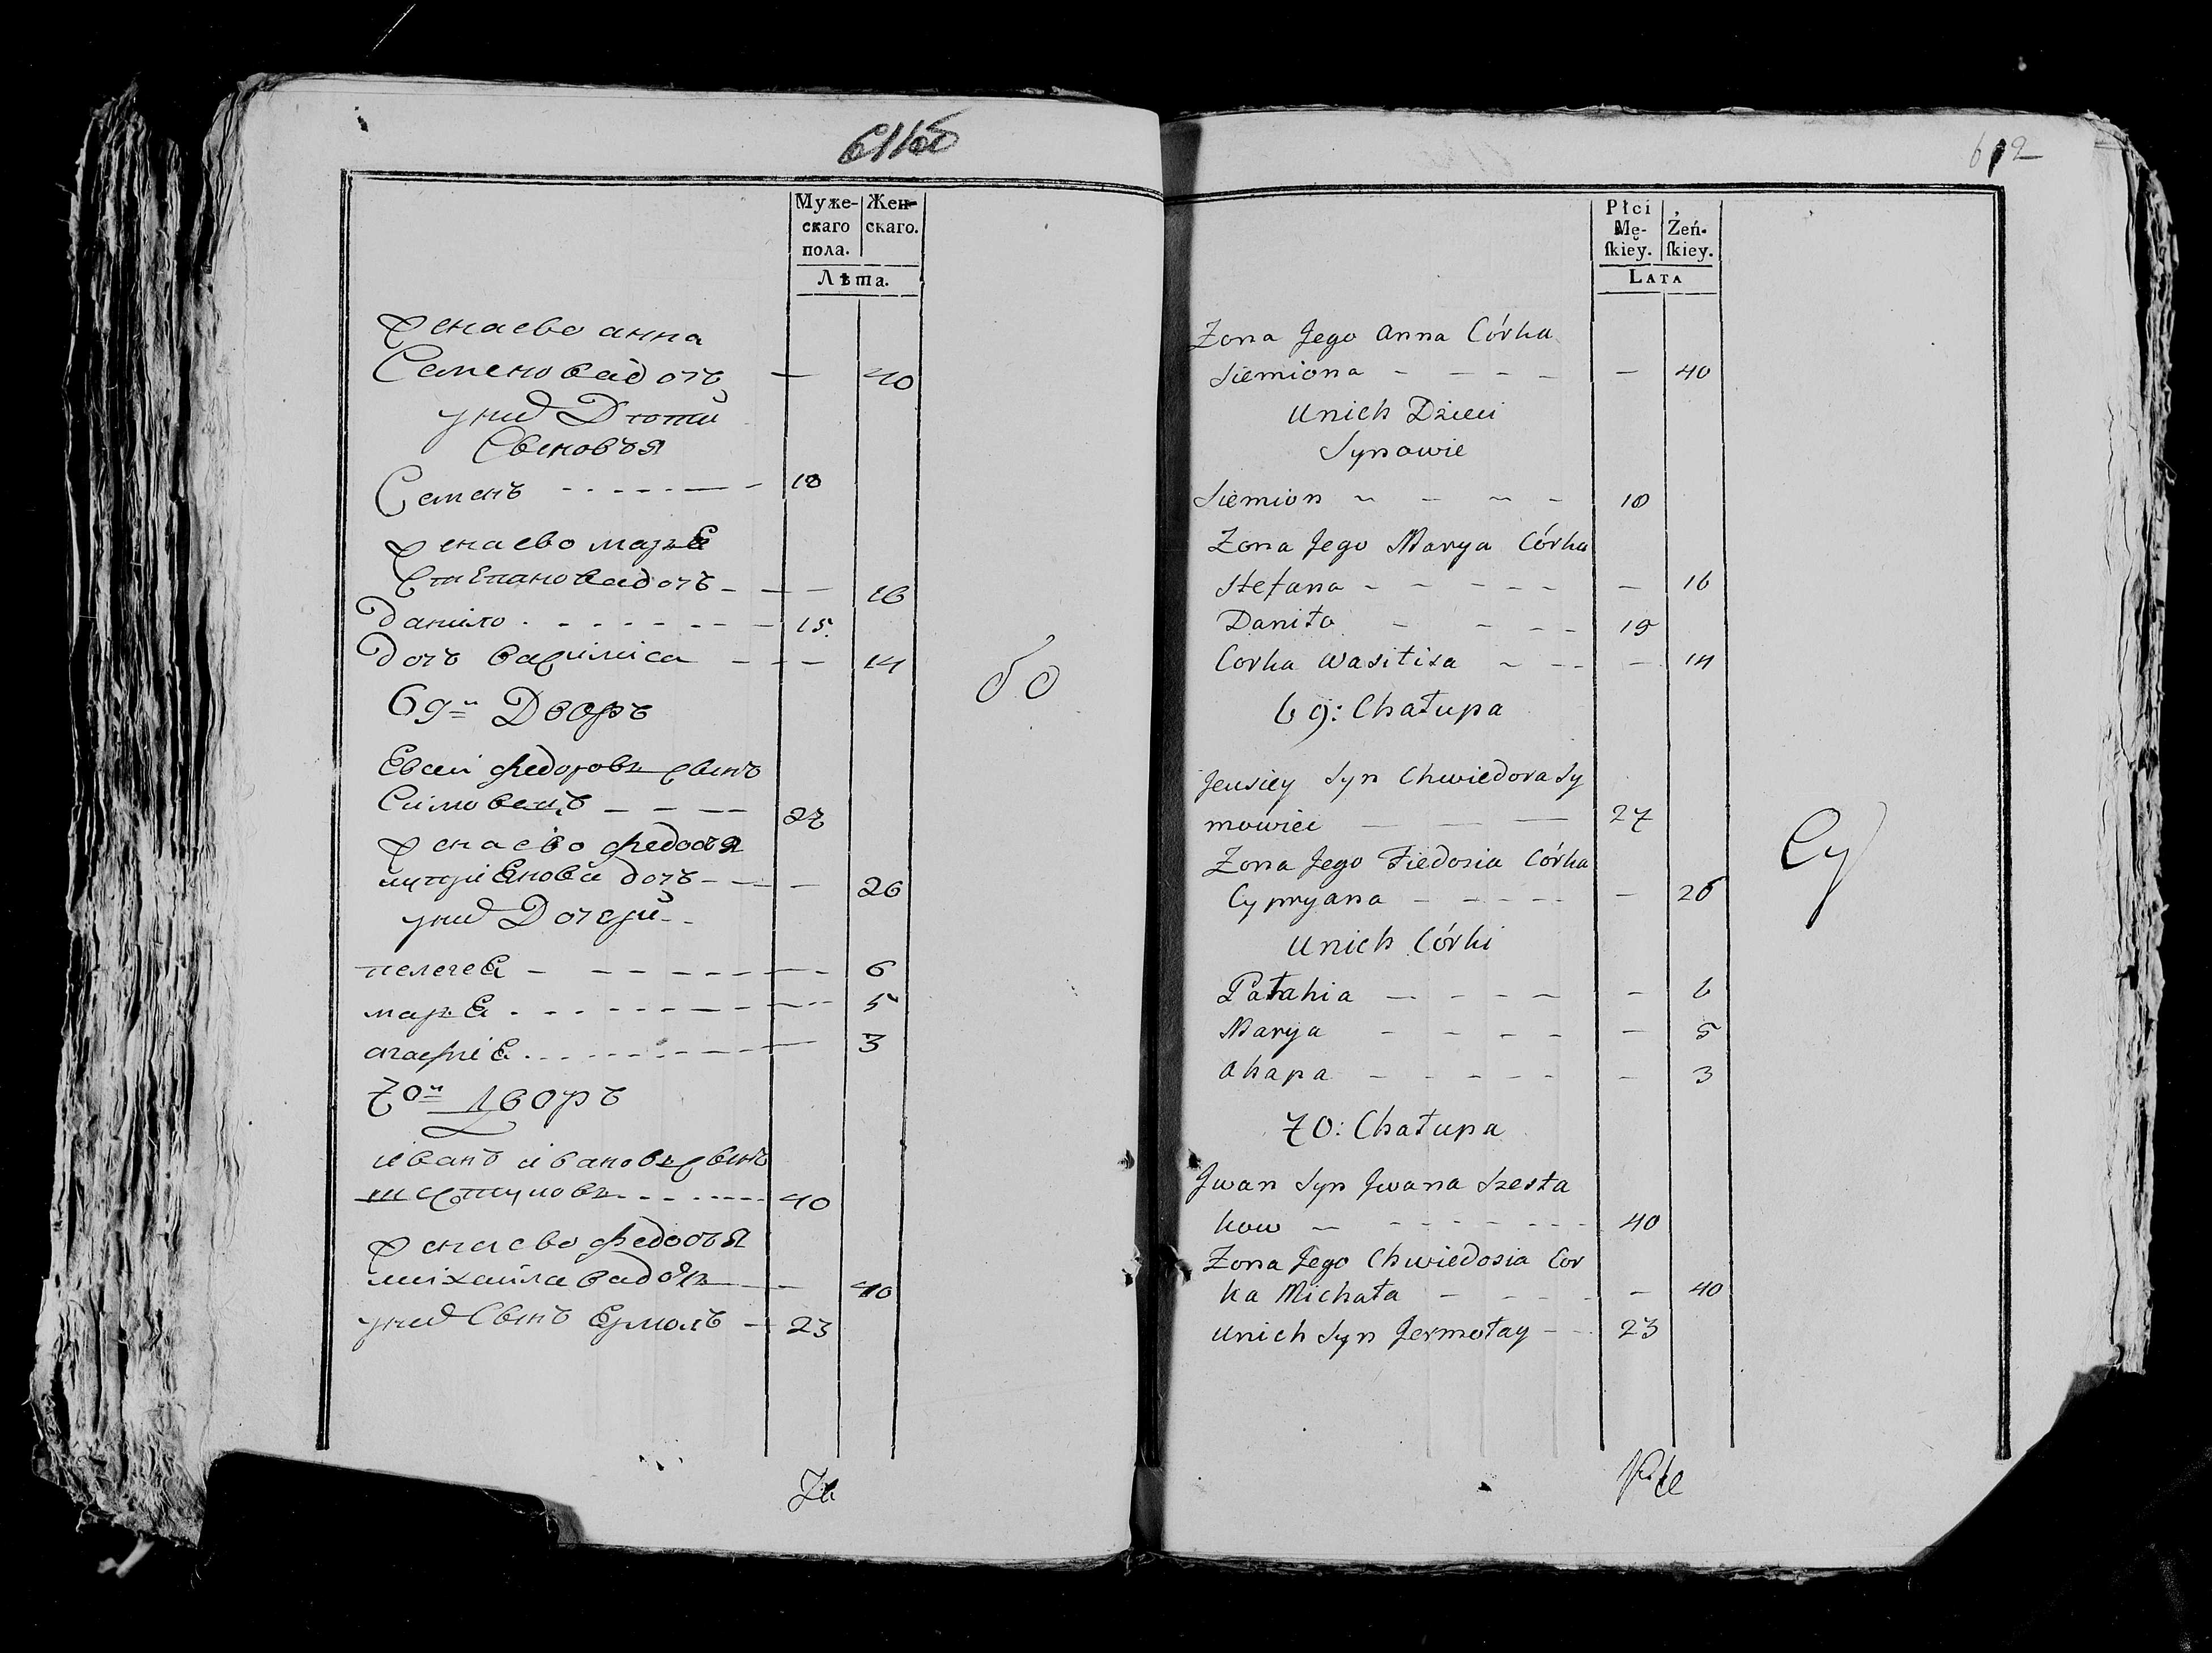 611об
Муже-
скаго
пола.
Жен-
скаго.
Лѣта.
Жена ево анна
Семенова дочь — 40
у них Дѣти
Сыновья
Семенъ 18
Жена ево марья
Степанова дочь 16
данило 15
дочь василиса 14
69й Дворъ
Евсей федоровъ сынъ
Симовецъ 27
Жена ево федосья
куприянова дочь 26
у них Дочери
пелагея 6
марья 5
агафия 3
70й Дворъ
иванъ ивановъ сынъ
шестаковъ 40
Жена ево федосья
михайлова дочь 40
у них Сынъ Ермолъ 23
612
Płci
Mę-
ſkiey.
Żeń-
ſkiey.
Lata
Zona Jego Anna Córka
Siemiona — 40
Unich Dzieci
Synowie
Siemion 18
Zona Jego Marya Córka
Stefana — 16
Daniło 15
Corka Wasilisa — 14
69: Chałupa
Jeusiey Syn Chwiedora Sy
mowiec 27
Zona Jego Fiedosia Córka
Cypryana — 26
Unich Córki
Pałahia — 6
Marya — 5
Ahapa — 3
70: Chałupa
Jwan Syn Jwana Szesta
kow 40
Zona Jego Chwiedosia Cor
ka Michała — 40
Unich Syn Jermołay 23